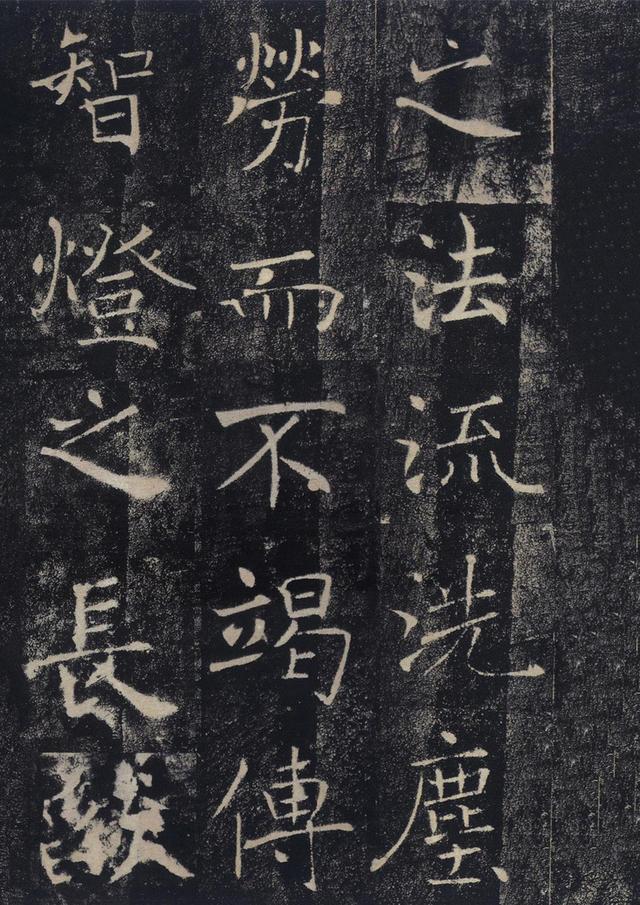 之法流洗塵
勞而不竭傳
智燈之長